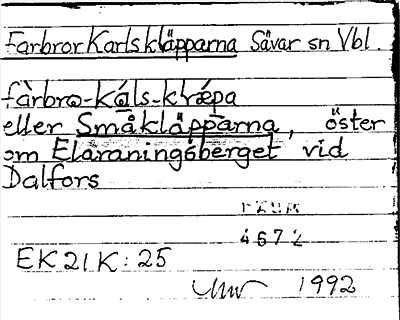 Farbror Karls kläpparna Sävar sn Vbl.
fàrbrω-ká̱ls-klǽpa
eller Småkläpparna, öster
om Elaraningsberget vid
Dalfors
4672
EK 21 K: 25
1992